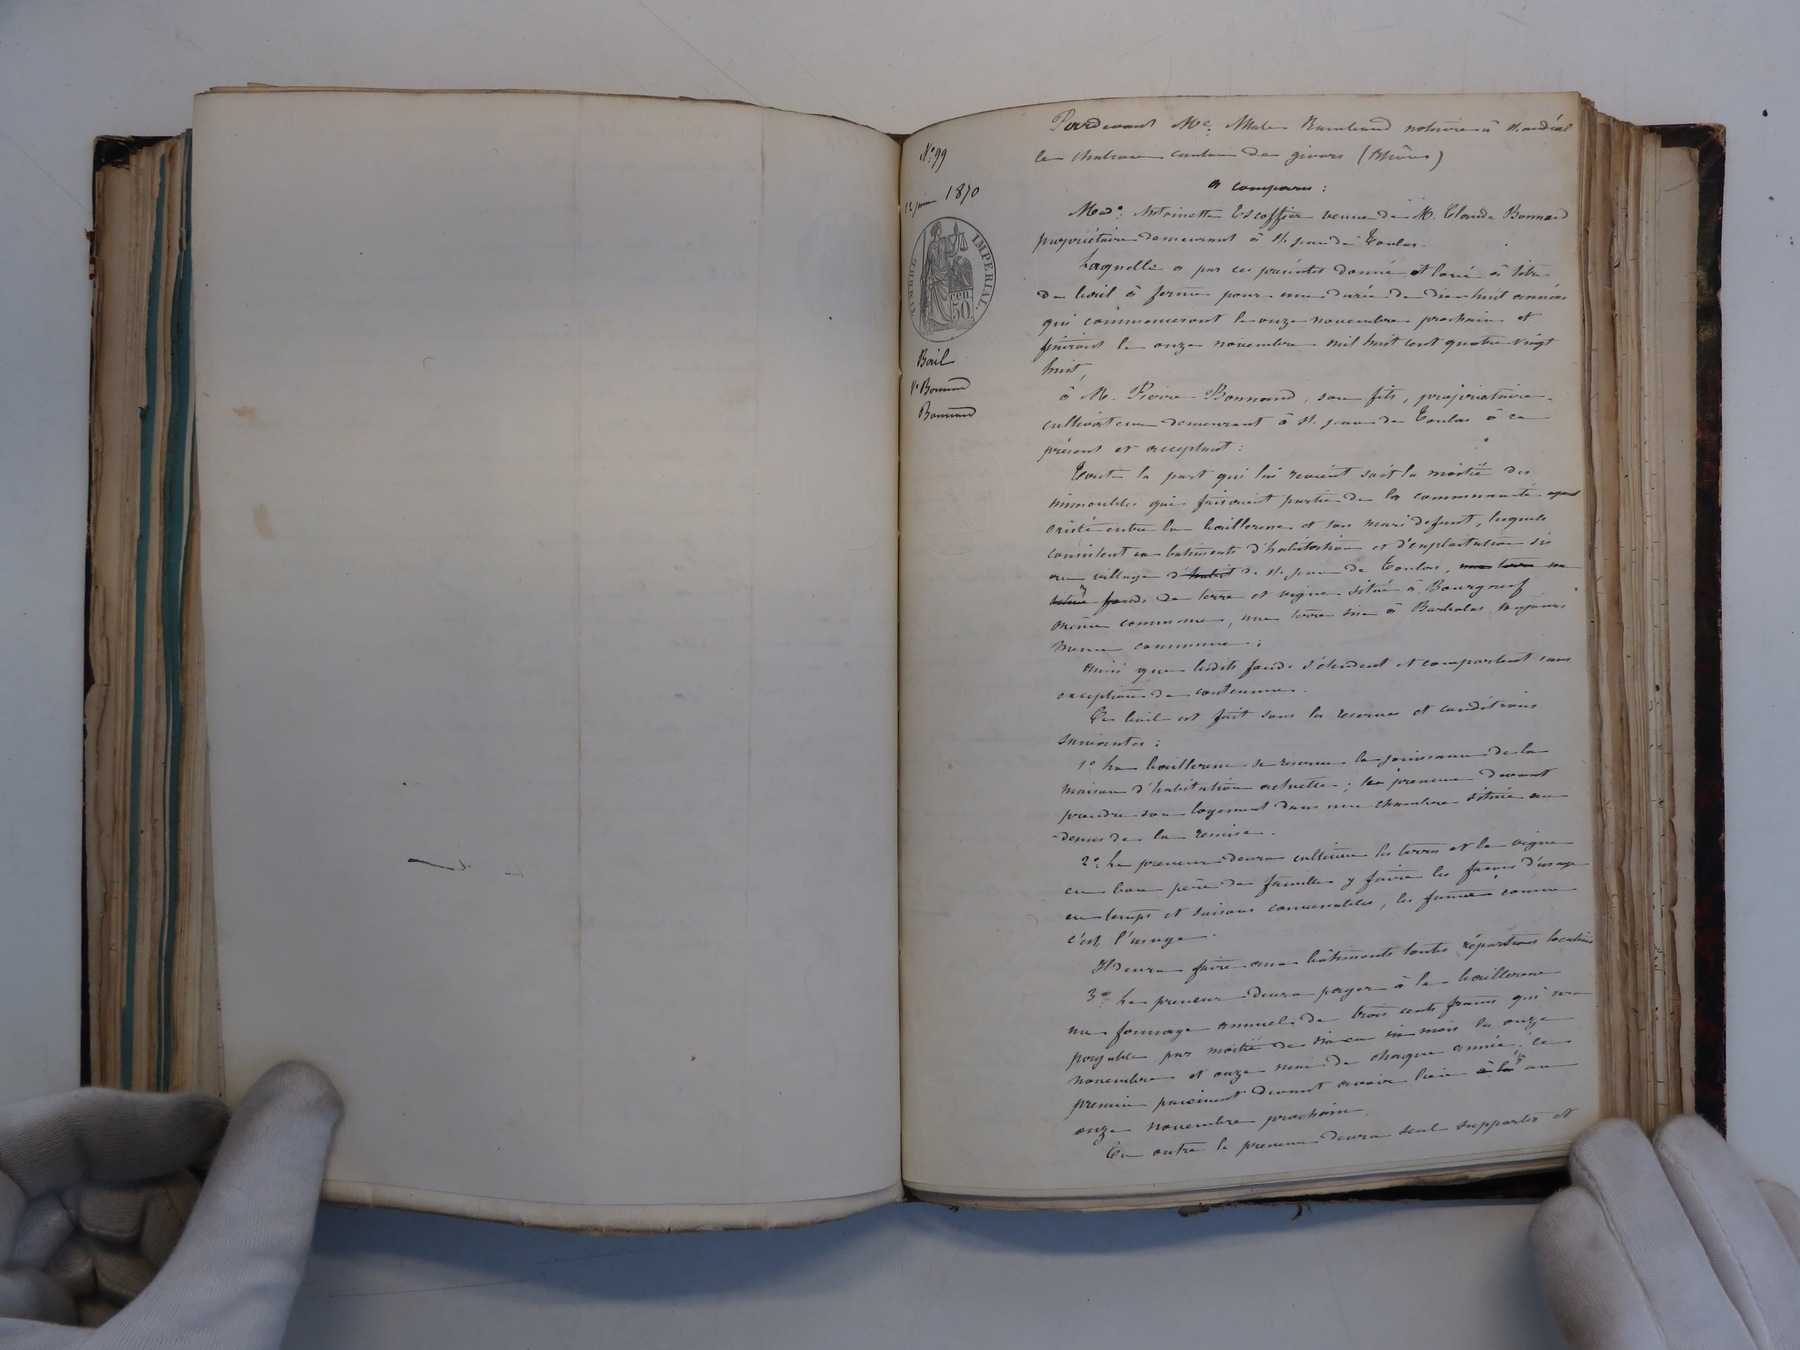 Pardevant Me. notaire à St andéol
le chateau canton de givors (Rhône)
a comparu :
N° 99
12 juin 1870
TIMBRE IMPERIAL
50 cen
Bail
Ve Bonnand
Bonnand
Made. Antoinette Escoffier veuve de M. Claude Bonnand
propriétaire demeurant à St. jean de Toulas.
Laquelle a par ces présentes donné et loué à titre
de bail à ferme pour une durée de dix huit années
qui commenceront le onze novembre prochain et
finiront le onze novembre mil huit cent quatre vingt
huit,
à M. Pierre Bonnand, son fils, propriétaire
cultivateur demeurant à St. jean de Toulas à ce
présent et acceptant :
Toute la part qui lui revient soit la moitié des
immeubles qui faisaient partie de la communauté ayant
existé entre la bailleresse et son mari defunt, lesquels
consistent en batiments d'habitation et d'exploitation sis
au village de St. jean de Toulas,
fonds de terre et vigne situé à Bourgneuf
même commune, une terre sise à toujours
meme commune ;
Ainsi que lesdits fonds s'étendent et comportent sans
exception de contenance.
Ce bail est fait sous les reserves et conditions
suivantes :
1° La bailleresse se reserve la jouissance de la
maison d'habitation actuelle ; le preneur devant
prendre son logement dans une chambre située au
dessus de la remise.
2° Le preneur devra cultiver les terres et la vigne
en bon père de famille y faire les façons d'usage
en temps et saisons convenables, les fumer comme
c'est l'usage.
Il devra faire aux bâtiments toutes réparations locatives
3° Le preneur devra payer à la bailleresse
un fermage annuel de trois cents francs qui sera
payable par moitié de six en six mois les onze
novembre et onze mai de chaque année ; le
premier paiement devant avoir lieu au
onze novembre prochain.
En outre le preneur devra seul supporter et